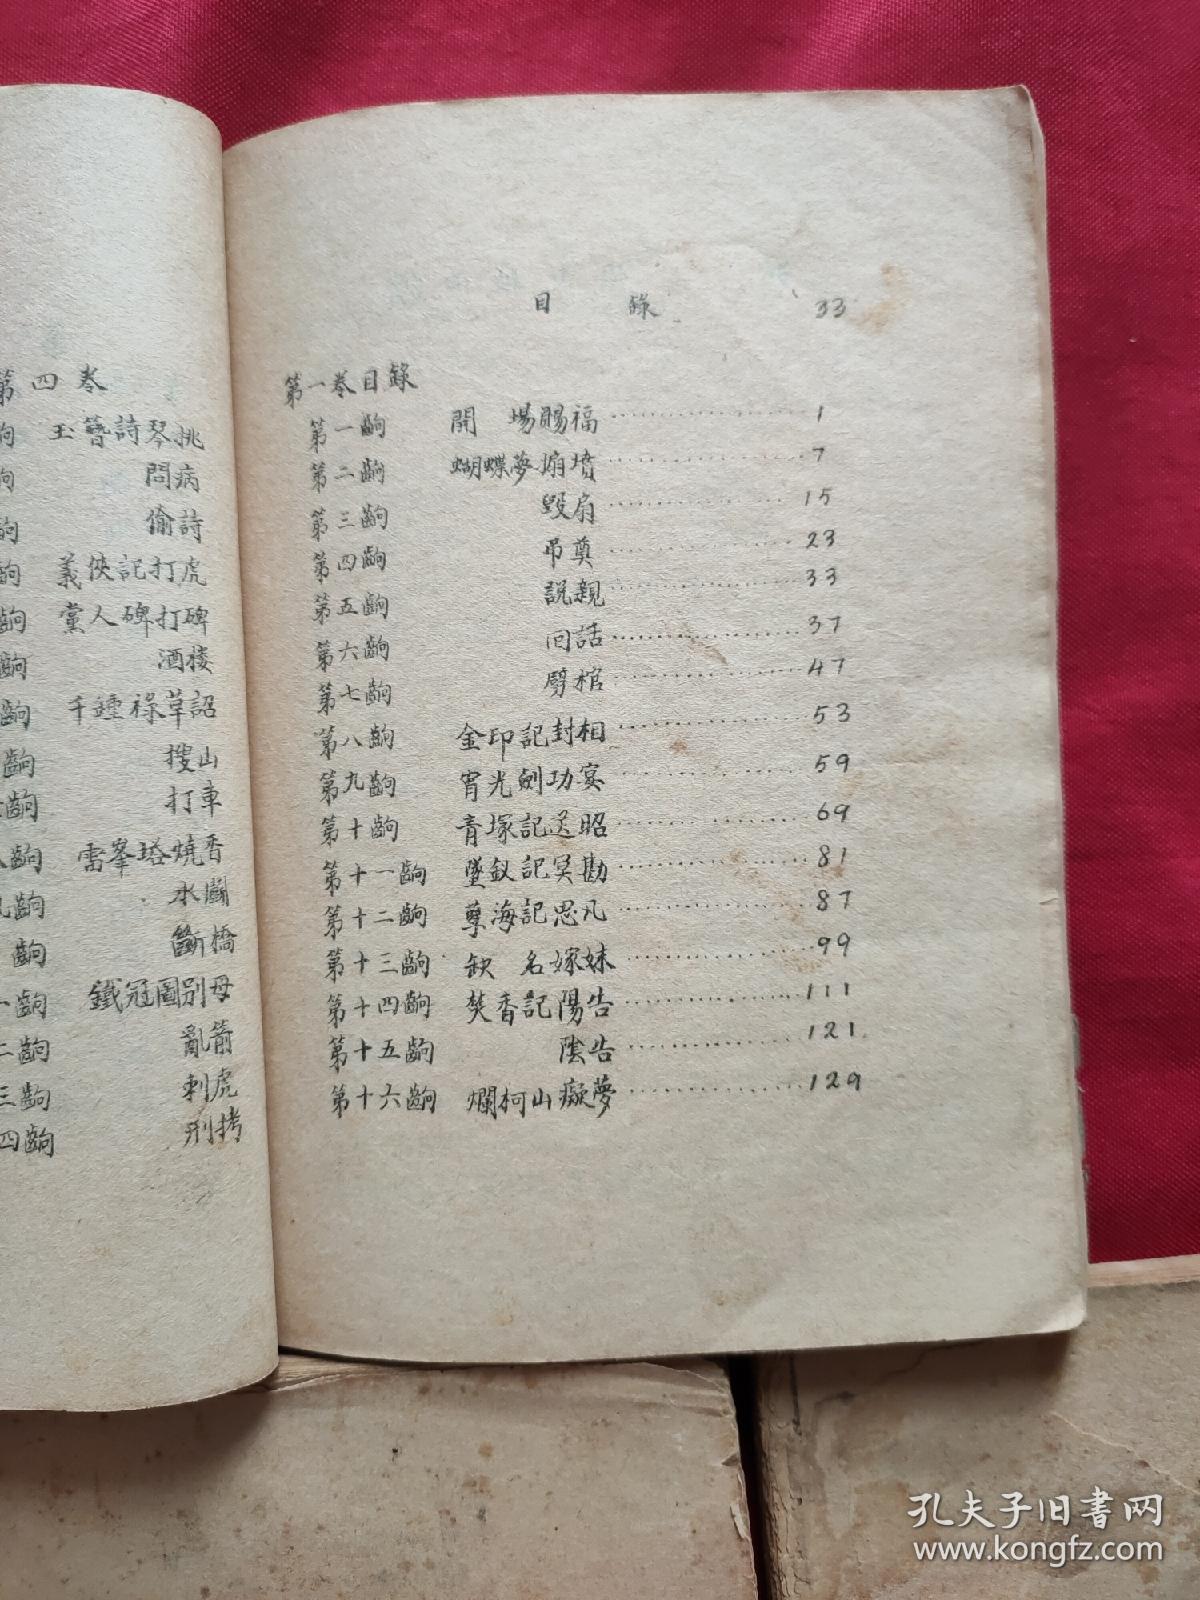 第四卷
齣 玉簪詩琴挑
齣 問病
齣 偷詩
齣 義俠記打虎
齣 黨人碑打碑
齣 酒楼
齣 千鍾祿草詔
齣 搜山
齣 打車
齣 雷峯塔燒香
九齣 水鬭
齣 斷橋
一齣 鐵冠圖別母
二齣 亂箭
三齣 刺虎
四齣 刑拷
目 錄 33
第一卷目錄
第一齣 開 場賜福 1
第二齣 蝴蝶夢搧墳 7
第三齣 毀扇 15
第四齣 吊奠 23
第五齣 說親 33
第六齣 回話 37
第七齣 劈棺 47
第八齣 金印記封相 53
第九齣 宵光劍功宴 59
第十齣 青塚記送昭 69
第十一齣 墜釵記冥勘 81
第十二齣 孽海記思凡 87
第十三齣 缺 名嫁妹 99
第十四齣 焚香記陽告 111
第十五齣 陰告 121
第十六齣 爛柯山癡夢 129
孔夫子旧书网
www.kongfz.com